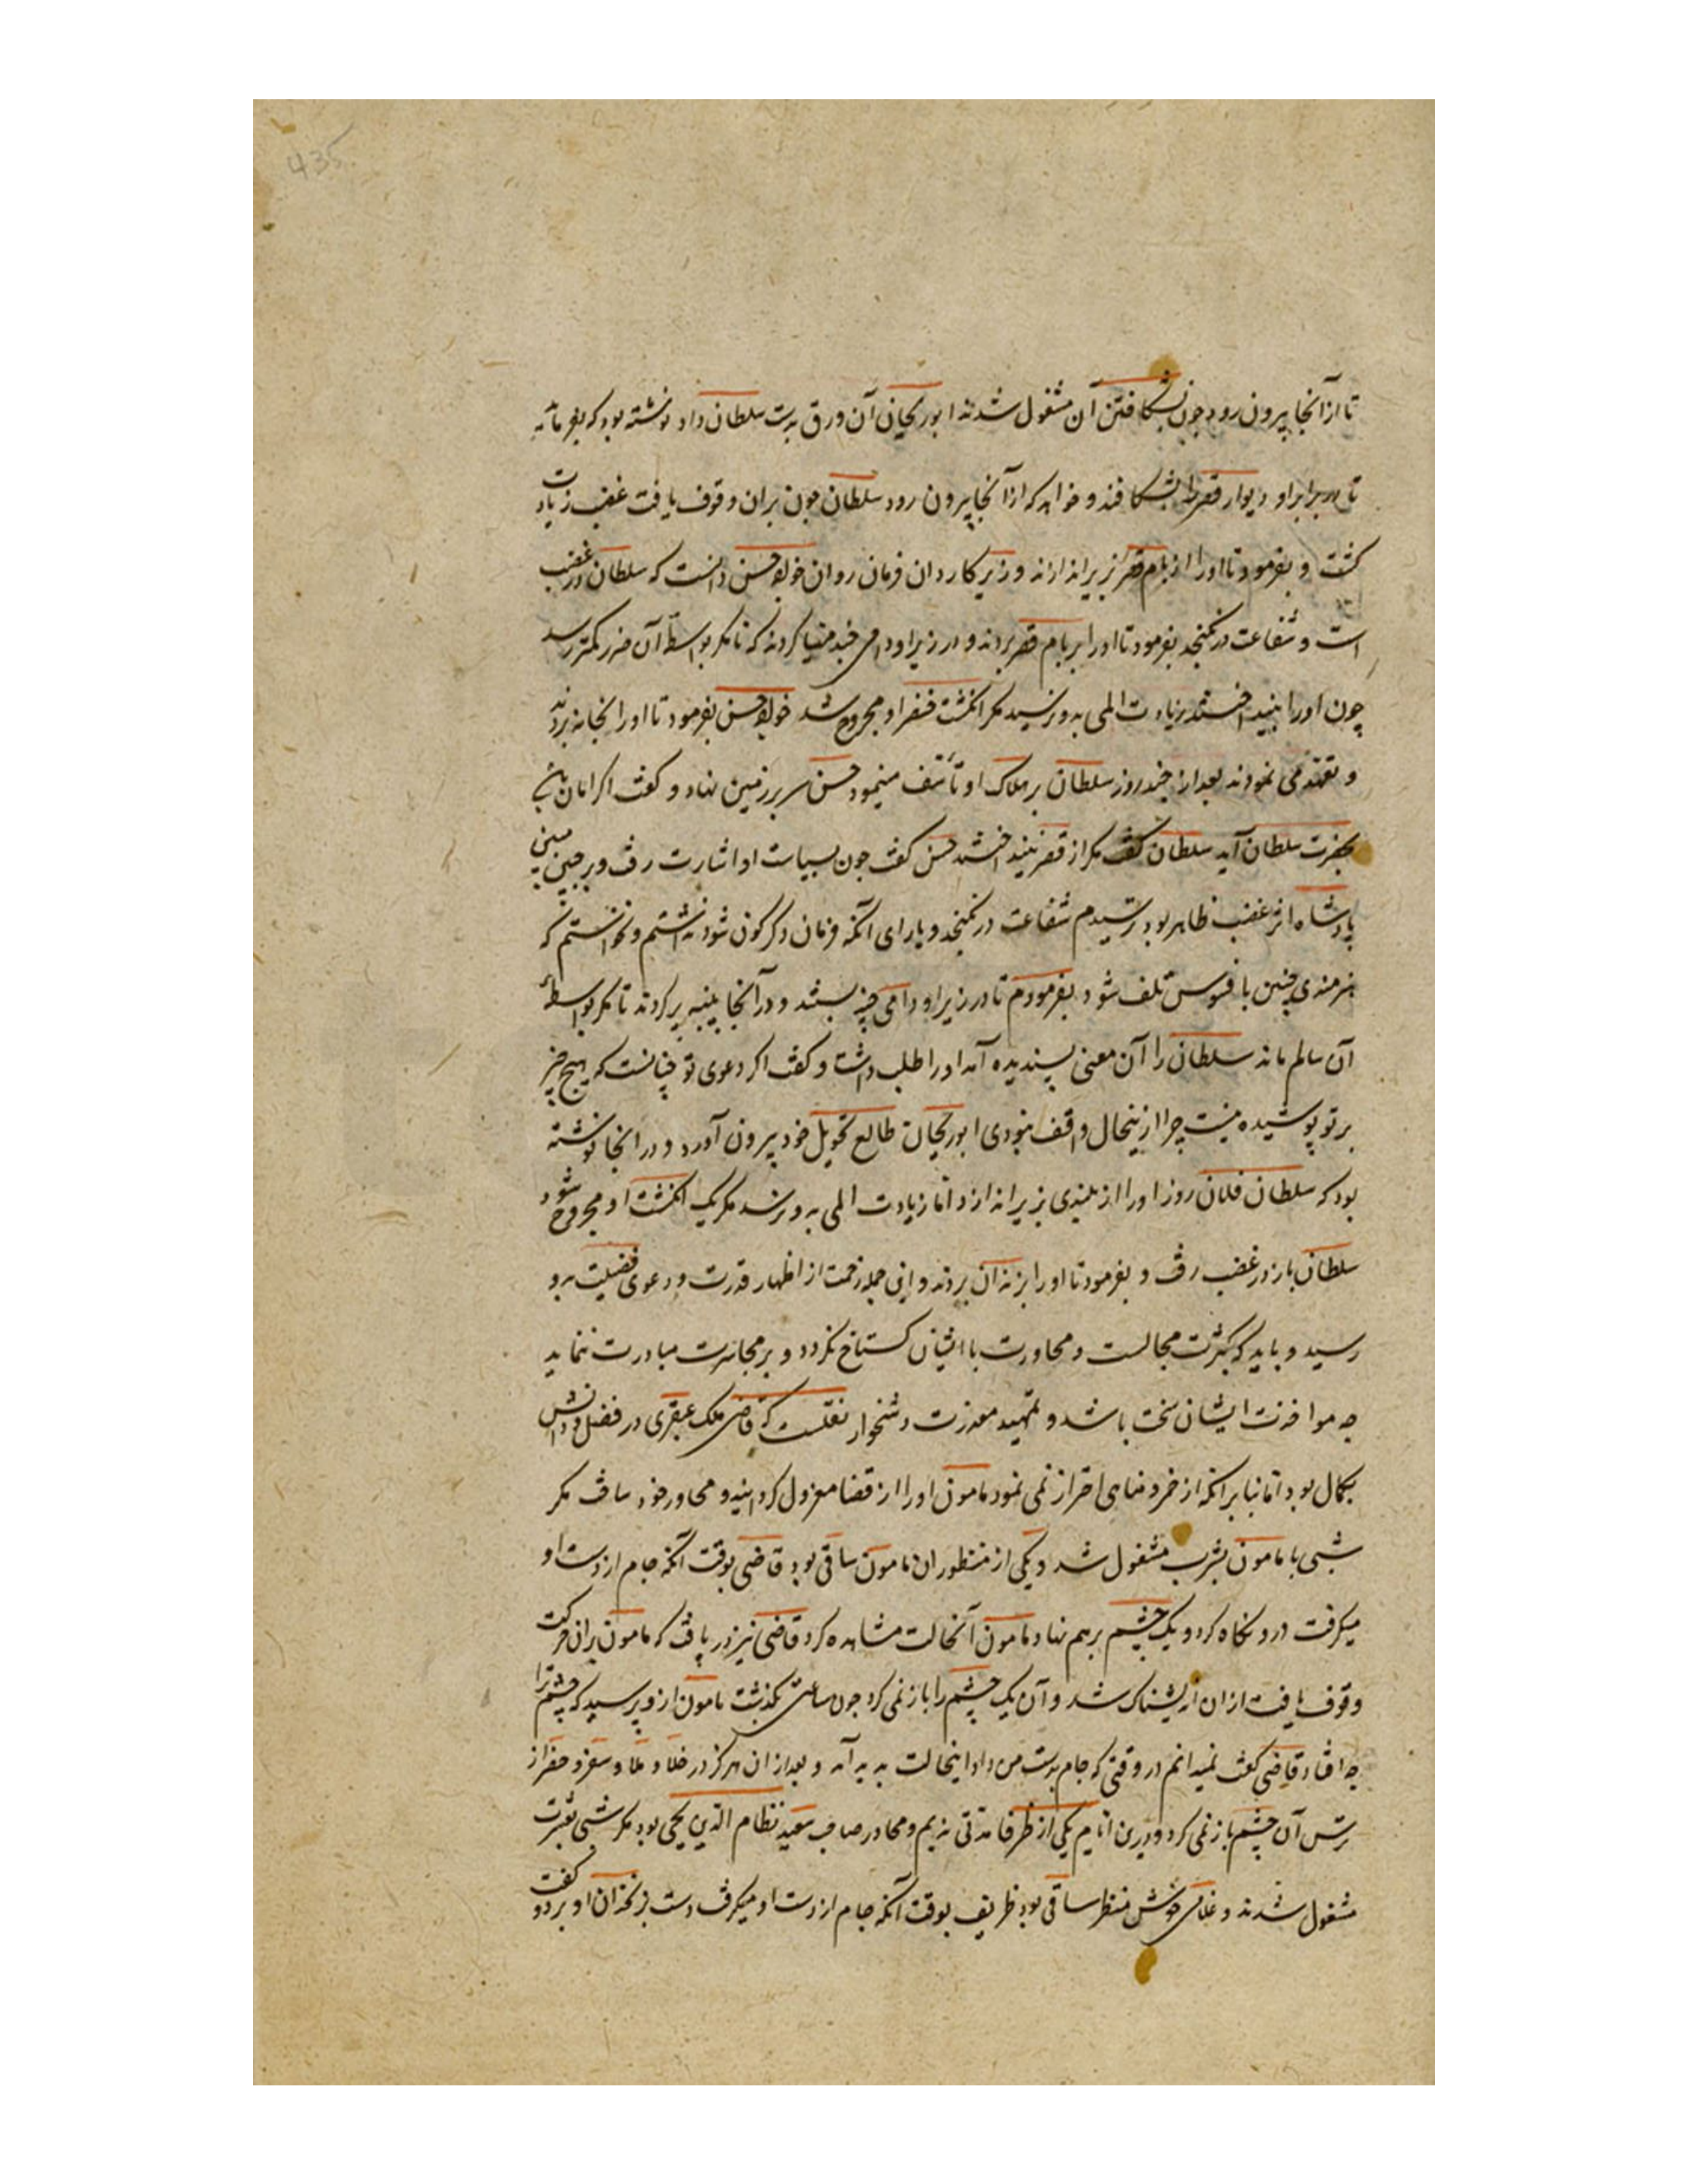 435
تا ازآنجا بیرون رود چون بشکافتن آن مشغول شدند ابوریحان آن ورق بدست سلطان داد نوشته بود که بفرماید
تا در برابر او دیوار قصر را بشکافند و خواهد که ازآنجا بیرون رود سلطان چون بران وقوف یافت غضب زیادت
کشت و بفرمود تا اورا از بام قصر بزیر اندازند وزیر کاردان فرمان روان خواجه حسن دانست که سلطان در غضب
است و شفاعت درنکنجد بفرمود تا اورا بر بام قصر بردند و در زیر او دامی چند مهیا کردند که تا مکر بواسطهٔ آن ضرر کمتر رسد
چون اورا بینداختند زیادت المی بدو نرسید مکر انکشت خنصر او مجروح شد خواجه حسن بفرمود تا اورا بخانه بردند
و تعهد می نمودند بعد از چند روز سلطان بر هلاک او تأسّف مینمود حسن سر بر زمین نهاد و کفت اکر امان یابد
بحضرت سلطان آید سلطان کفت مکر از قصر نینداختند حسن کفت چون بسیاست او اشارت رفت و بر جبین مبین
پادشاه اثر غضب ظاهر بود ترسیدم شفاعت درنکنجد و یارای آنکه فرمان دکرکون شود نداشتم و نخواستم که
هنرمندی چنین بافسوس تلف شود بفرمودم تا در زیر او دامی چند ببستند و درآنجا پنبه پر کردند تا مکر بواسطهٔ
آن سالم ماند سلطان را آن معنی پسندیده آمد اورا طلب داشت و کفت اکر دعوی تو چنانست که هیچ چیز
بر تو پوشیده نیست چرا ازینحال واقف نبودی ابوریحان طالع تحویل خود بیرون آورد و درانجا نوشته
بود که سلطان فلان روز اورا از بلندی بزیر اندازد امّا زیادت المی بدو نرسد مکر یک انکشت او مجروح شود
سلطان باز در غضب رفت و بفرمود تا اورا بزندان بردند و این جمله زحمت از اظهار قدرت و دعوی فضیلت برو
رسید و باید که بکثرت مجالست و محاورت با ایشان کستاخ نکردد و بر مجاسرت مبادرت ننماید
چه مواخذت ایشان سخت باشد و تمهید معذرت دشخوار نقلست که قاضی ملک عبقری در فضل و دانش
بکمال بود امّا بنابرانکه از خمر و مناهی احتراز نمی نمود مامون اورا از قضا معزول کردانید و محاور خود ساخت مکر
شبی با مامون بشرب مشغول شد و یکی از منظوران مامون ساقی بود قاضی بوقت آنکه جام از دست او
میکرفت درو نکاه کرد و یک چشم برهم نهاد مامون آنحالت مشاهده کرد قاضی نیز دریافت که مامون بران حرکت
وقوف یافت ازان اندیشناک شد و آن یک چشم را باز نمی کرد چون ساعتی بکذشت مامون ازو پرسید که چشم ترا
چه افتاد قاضی کفت نمیدانم در وقتی که جام بدست من داد اینحالت پدید آمد و بعد ازان هرکز در خلا و ملا و سفر و حضر از
ترس آن چشم باز نمی کرد و درین ایّام یکی از ظرفا مدتی ندیم و محاور صاحب سعید نظام الدّین یحیی بود مکر شبی بعشرت
مشغول شدند و غلامی خوش منظر ساقی بود ظریف بوقت آنکه جام از دست او میکرفت دست بزنخدان او برد و کفت